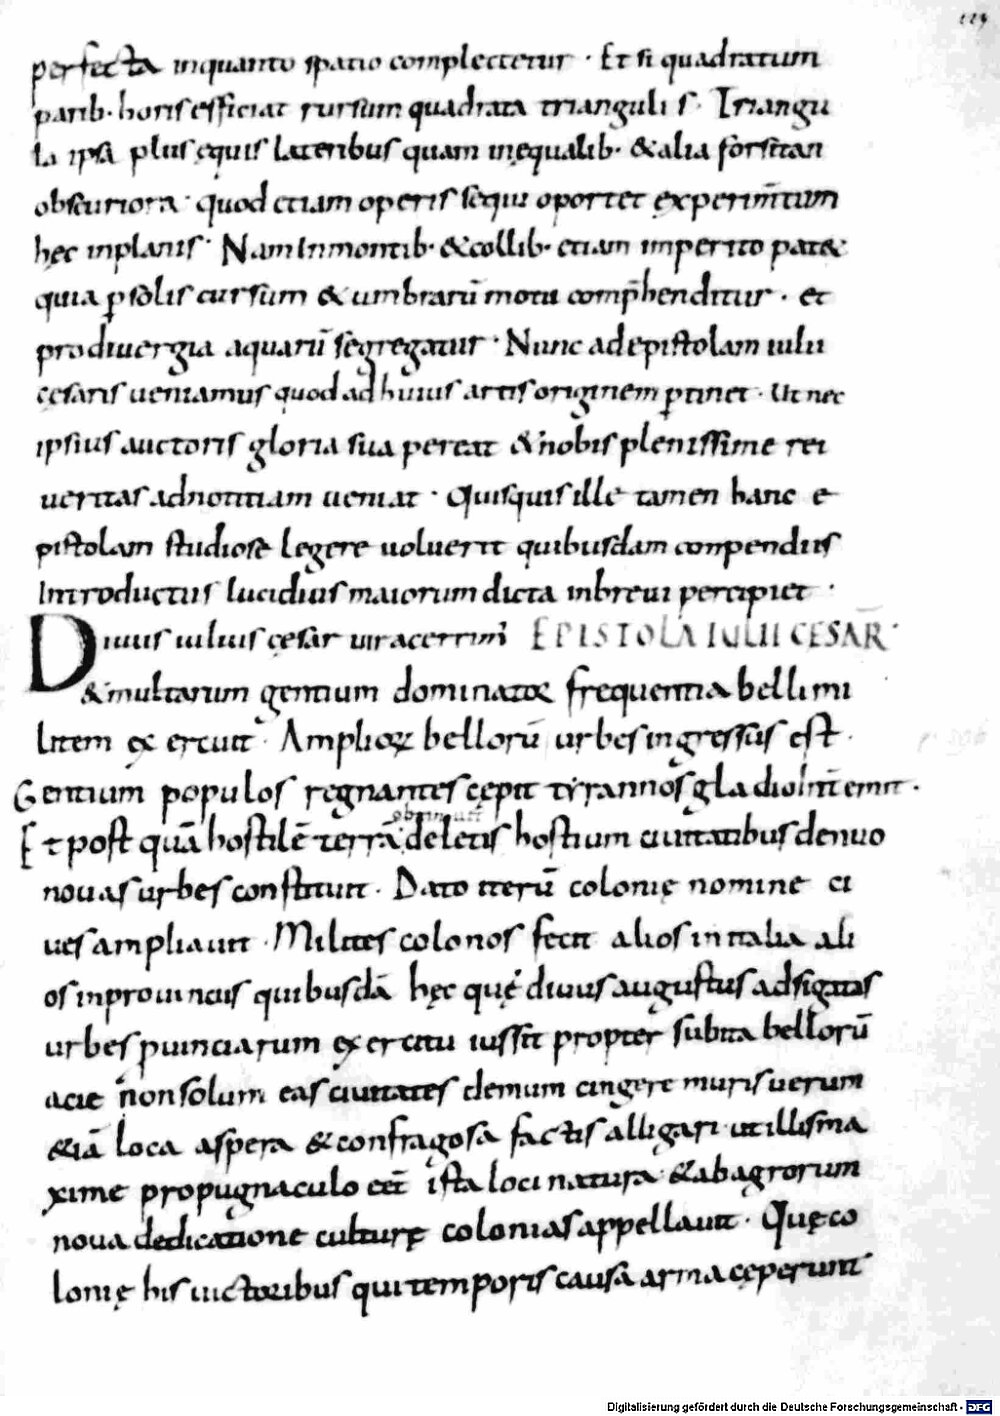 129
perfecta inquanto spatio complectetur · Et si quadratum
parib· horis efficiat rursum quadrata trianguli s· Triangu
la ipsa plus ęquis lateribus quam inęqualib· &alia forsitan
obscuriora· quod etiam operis sequi oportet experim̄tum
hęc inplanis· Nam Inmontib· &collib· etiam imperito pat&
quia ꝑ solis cursum & umbrarū motu comp̄henditur · et
prodiuergia aquarū segregatur · Nunc adepistolam iulii
cęsaris ueniamus quod ad huius artis originem ꝑtinet · Ut nec
ipsius auctoris gloria sua pereat & nobis plenissime rei
ueritas adnotitiam ueniat · Quisquis ille tamen hanc e
pistolam studiose legere uoluerit quibusdam conpendiis
Introductus lucidius maiorum dicta inbreui percipiet ·
Diuus iulius cęsar uir acerrim' EPISTOLA IULII CESAR̄·
&multarum gentium dominatoꝝ frequentia belli mi
litem exercuit · Amplioꝝ bellorū urbes ingressus est ·
Gentium populos regnantes cępit tyrannos gladio Int̄emit ·
obtinuit
Et post quā hostilē terrā deletis hostium ciuitatibus denuo
nouas urbes constituit · Dato iterū colonię nomine ci
ues ampliauit · Milites colonos fecit alios initalia ali
os inprouinciis quibusdā hęc quę diuus augustus adsigatas
urbes ꝓuinciarum exercitu iussit propter subita bellorū
acie non solum eas ciuitates demum cingere muris uerum
&iā loca aspera & confragosa factis alligari· ut illis ma
xime propugnaculo eēt ista loci natura· &abagrorum
noua dedicatione culturę colonias appellauit · Quę co
lonię his uictoribus qui temporis causa arma cęperunt
Digitalisierung gefördert durch die Deutsche Forschungsgemeinschaft - DFG